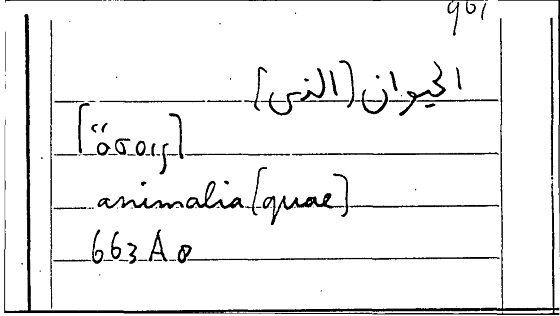 الحيوان [الذى]
[ὅσοις]
animalia [quae]
663A8